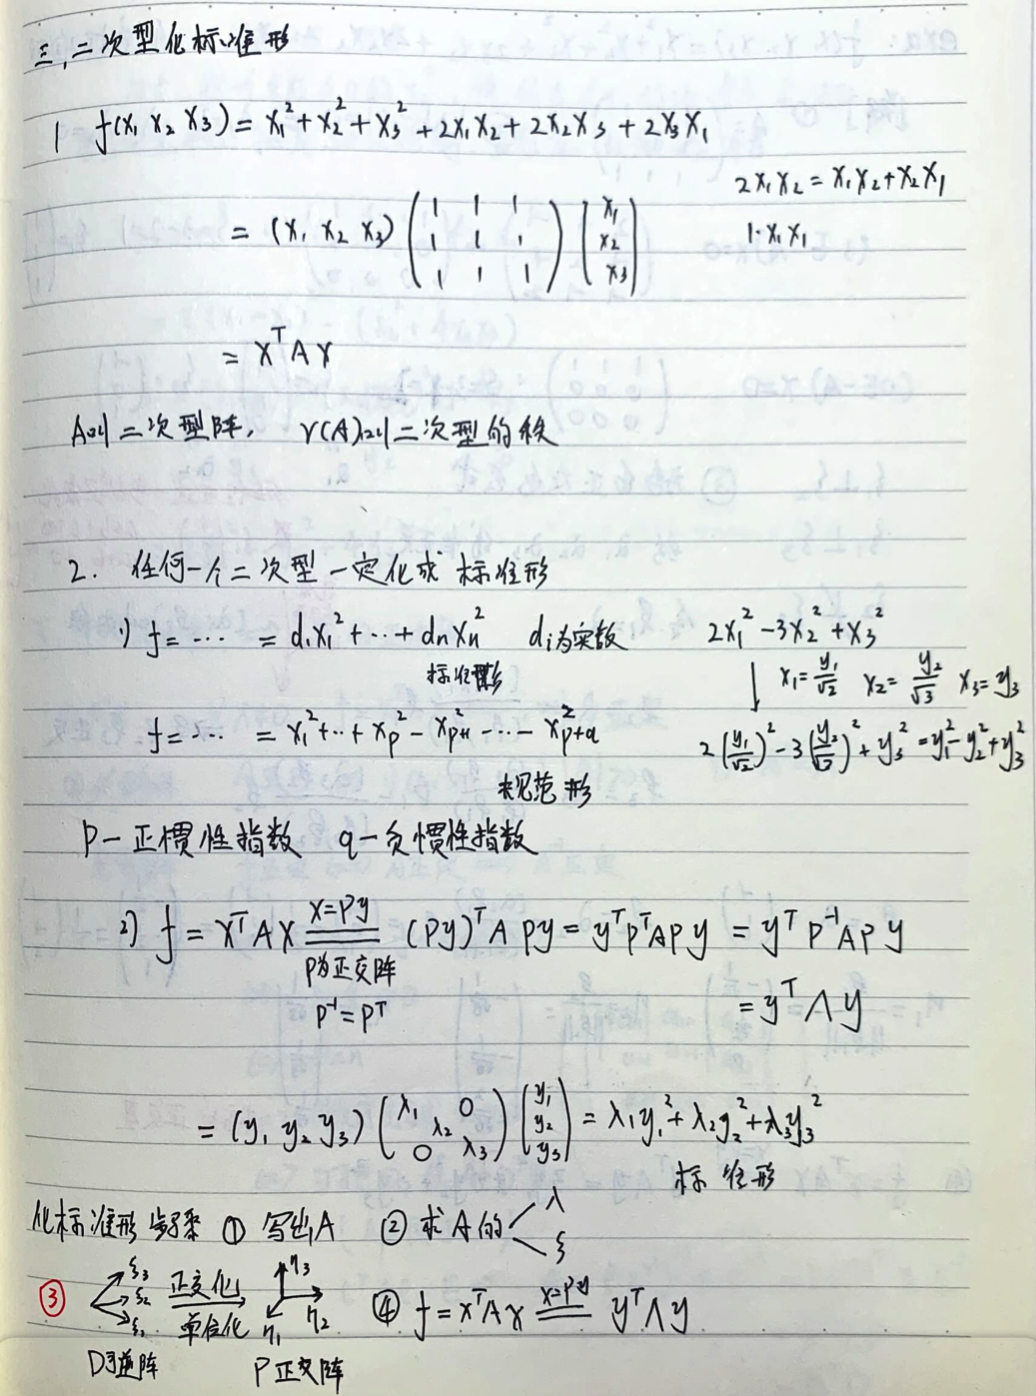 三、二次型化标准形
1 f(x₁ x₂ x₃) = x₁² + x₂² + x₃² + 2x₁x₂ + 2x₂x₃ + 2x₃x₁
2x₁x₂ = x₁x₂ + x₂x₁
1·x₁x₁
= (x₁ x₂ x₃) (1 1 1
1 1 1
1 1 1) (x₁
x₂
x₃)
= xᵀAx
A叫二次型阵, r(A)叫二次型的秩
2. 任何一个二次型一定化成标准形
1) f = ⋯ = d₁x₁² + ⋯ + dₙxₙ² dᵢ为实数
标准形
2x₁² - 3x₂² + x₃²
↓ x₁ = y₁/√2 x₂ = y₂/√3 x₃ = y₃
f = ⋯ = x₁² + ⋯ + x_p² - x_{p+1}² - ⋯ - x_{p+q}²
规范形
2(y₁/√2)² - 3(y₂/√3)² + y₃² = y₁² - y₂² + y₃²
p—正惯性指数 q—负惯性指数
2) f = xᵀAx ══ x=Py (Py)ᵀAPy = yᵀPᵀAPy = yᵀP⁻¹APy
P为正交阵
P⁻¹ = Pᵀ
= yᵀΛy
= (y₁ y₂ y₃) (λ₁ 0
λ₂
0 λ₃) (y₁
y₂
y₃) = λ₁y₁² + λ₂y₂² + λ₃y₃²
标准形
化标准形步骤 ① 写出A ② 求A的 λ
ξ
③ ξ₃ ξ₂ ξ₁ 正交化 单位化 → η₃ η₂ η₁ ④ f = xᵀAx ══ x=Py yᵀΛy
D可逆阵 P正交阵